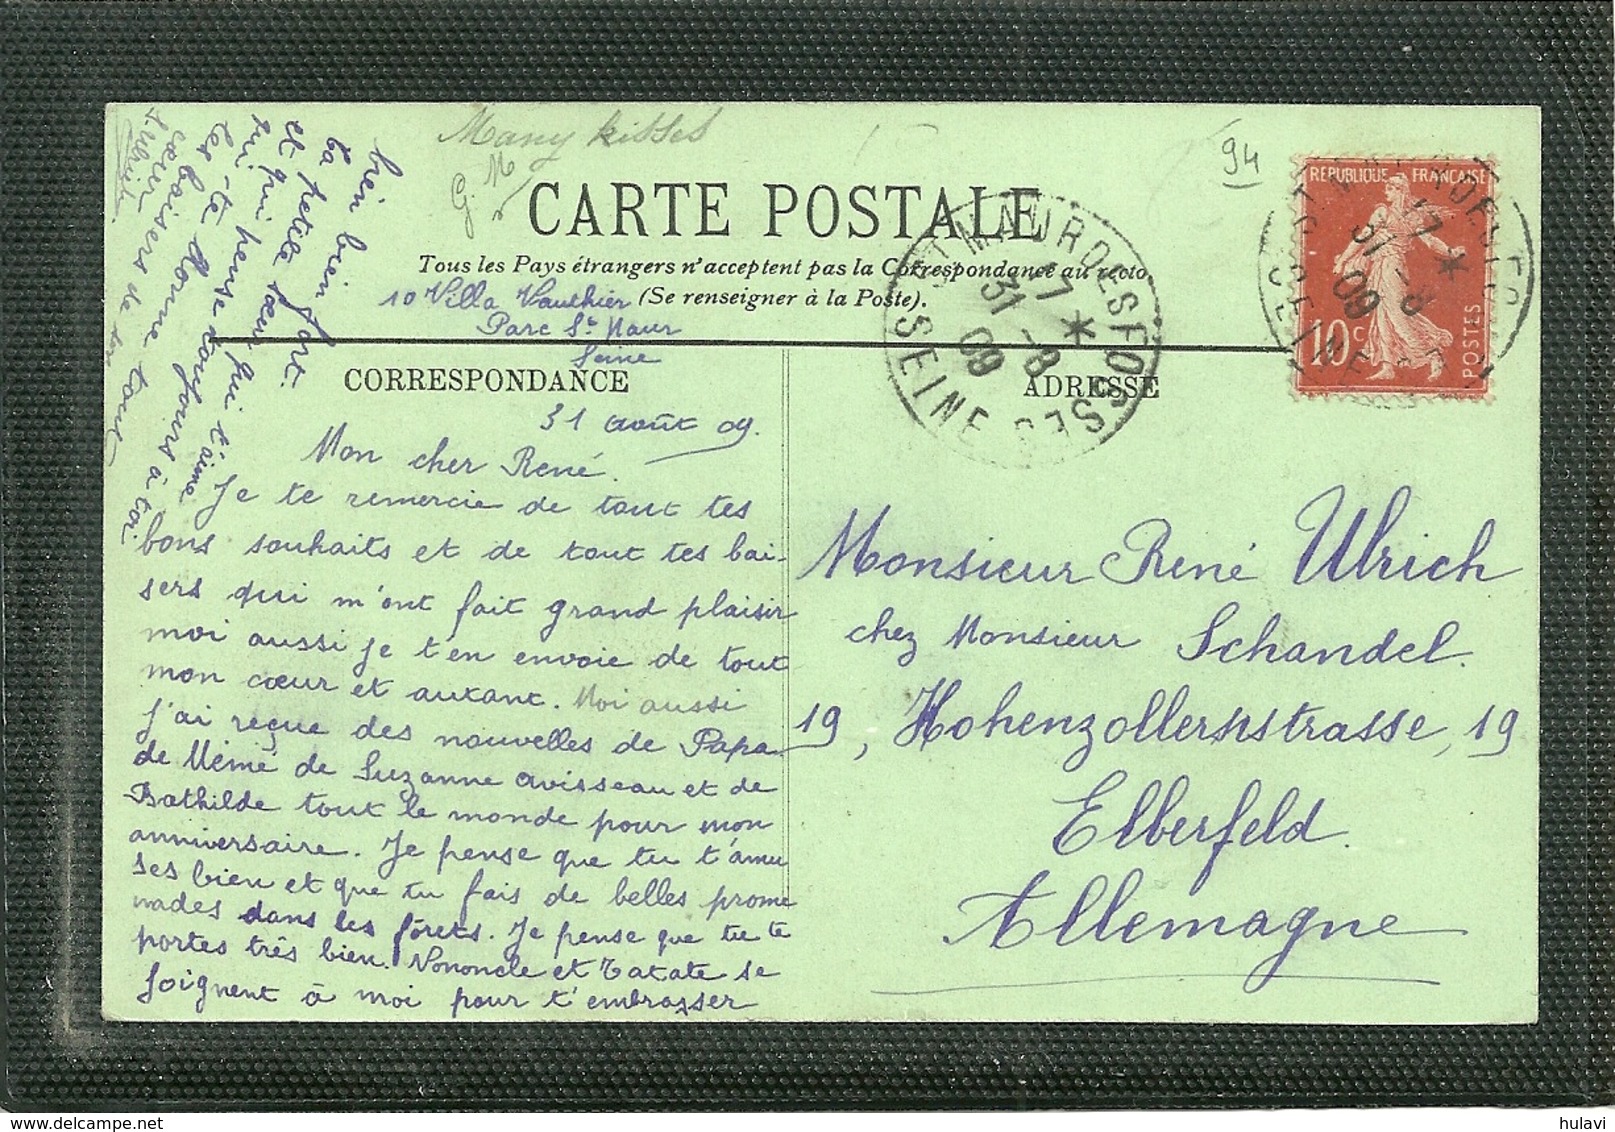 Many kisses
G M
94
CARTE POSTALE
Tous les Pays étrangers n'acceptent pas la Correspondance au recto
(Se renseigner à la Poste).
10 Villa Vauthier
Parc St Maur
Seine
ST MAUR DES FOSSES
17 *
31 -8
09
SEINE
REPUBLIQUE FRANÇAISE
10c
POSTES
17 *
31 -8
09
SEINE
CORRESPONDANCE
ADRESSE
31 août 09.
Mon cher René.
Je te remercie de tout tes
bons souhaits et de tout tes bai-
sers qui m'ont fait grand plaisir
moi aussi je t'en envoie de tout
mon cœur et autant. Moi aussi
j'ai reçue des nouvelles de Papa
de Mémé de Suzanne avisseau et de
Bathilde tout le monde pour mon
anniversaire. Je pense que tu t'amu
ses bien et que tu fais de belles prome
nades dans les fôrets. Je pense que tu te
portes très bien. Nononcle et Tatate se
joignent à moi pour t'embrasser
bien bien fort.
ta petite sœur qui t'aime
et qui pense toujours à toi.
baisers de tout
cœur
Monsieur René Ulrich
chez Monsieur Schandel.
19, Hohenzollernstrasse, 19
Elberfeld.
Allemagne
hulavi